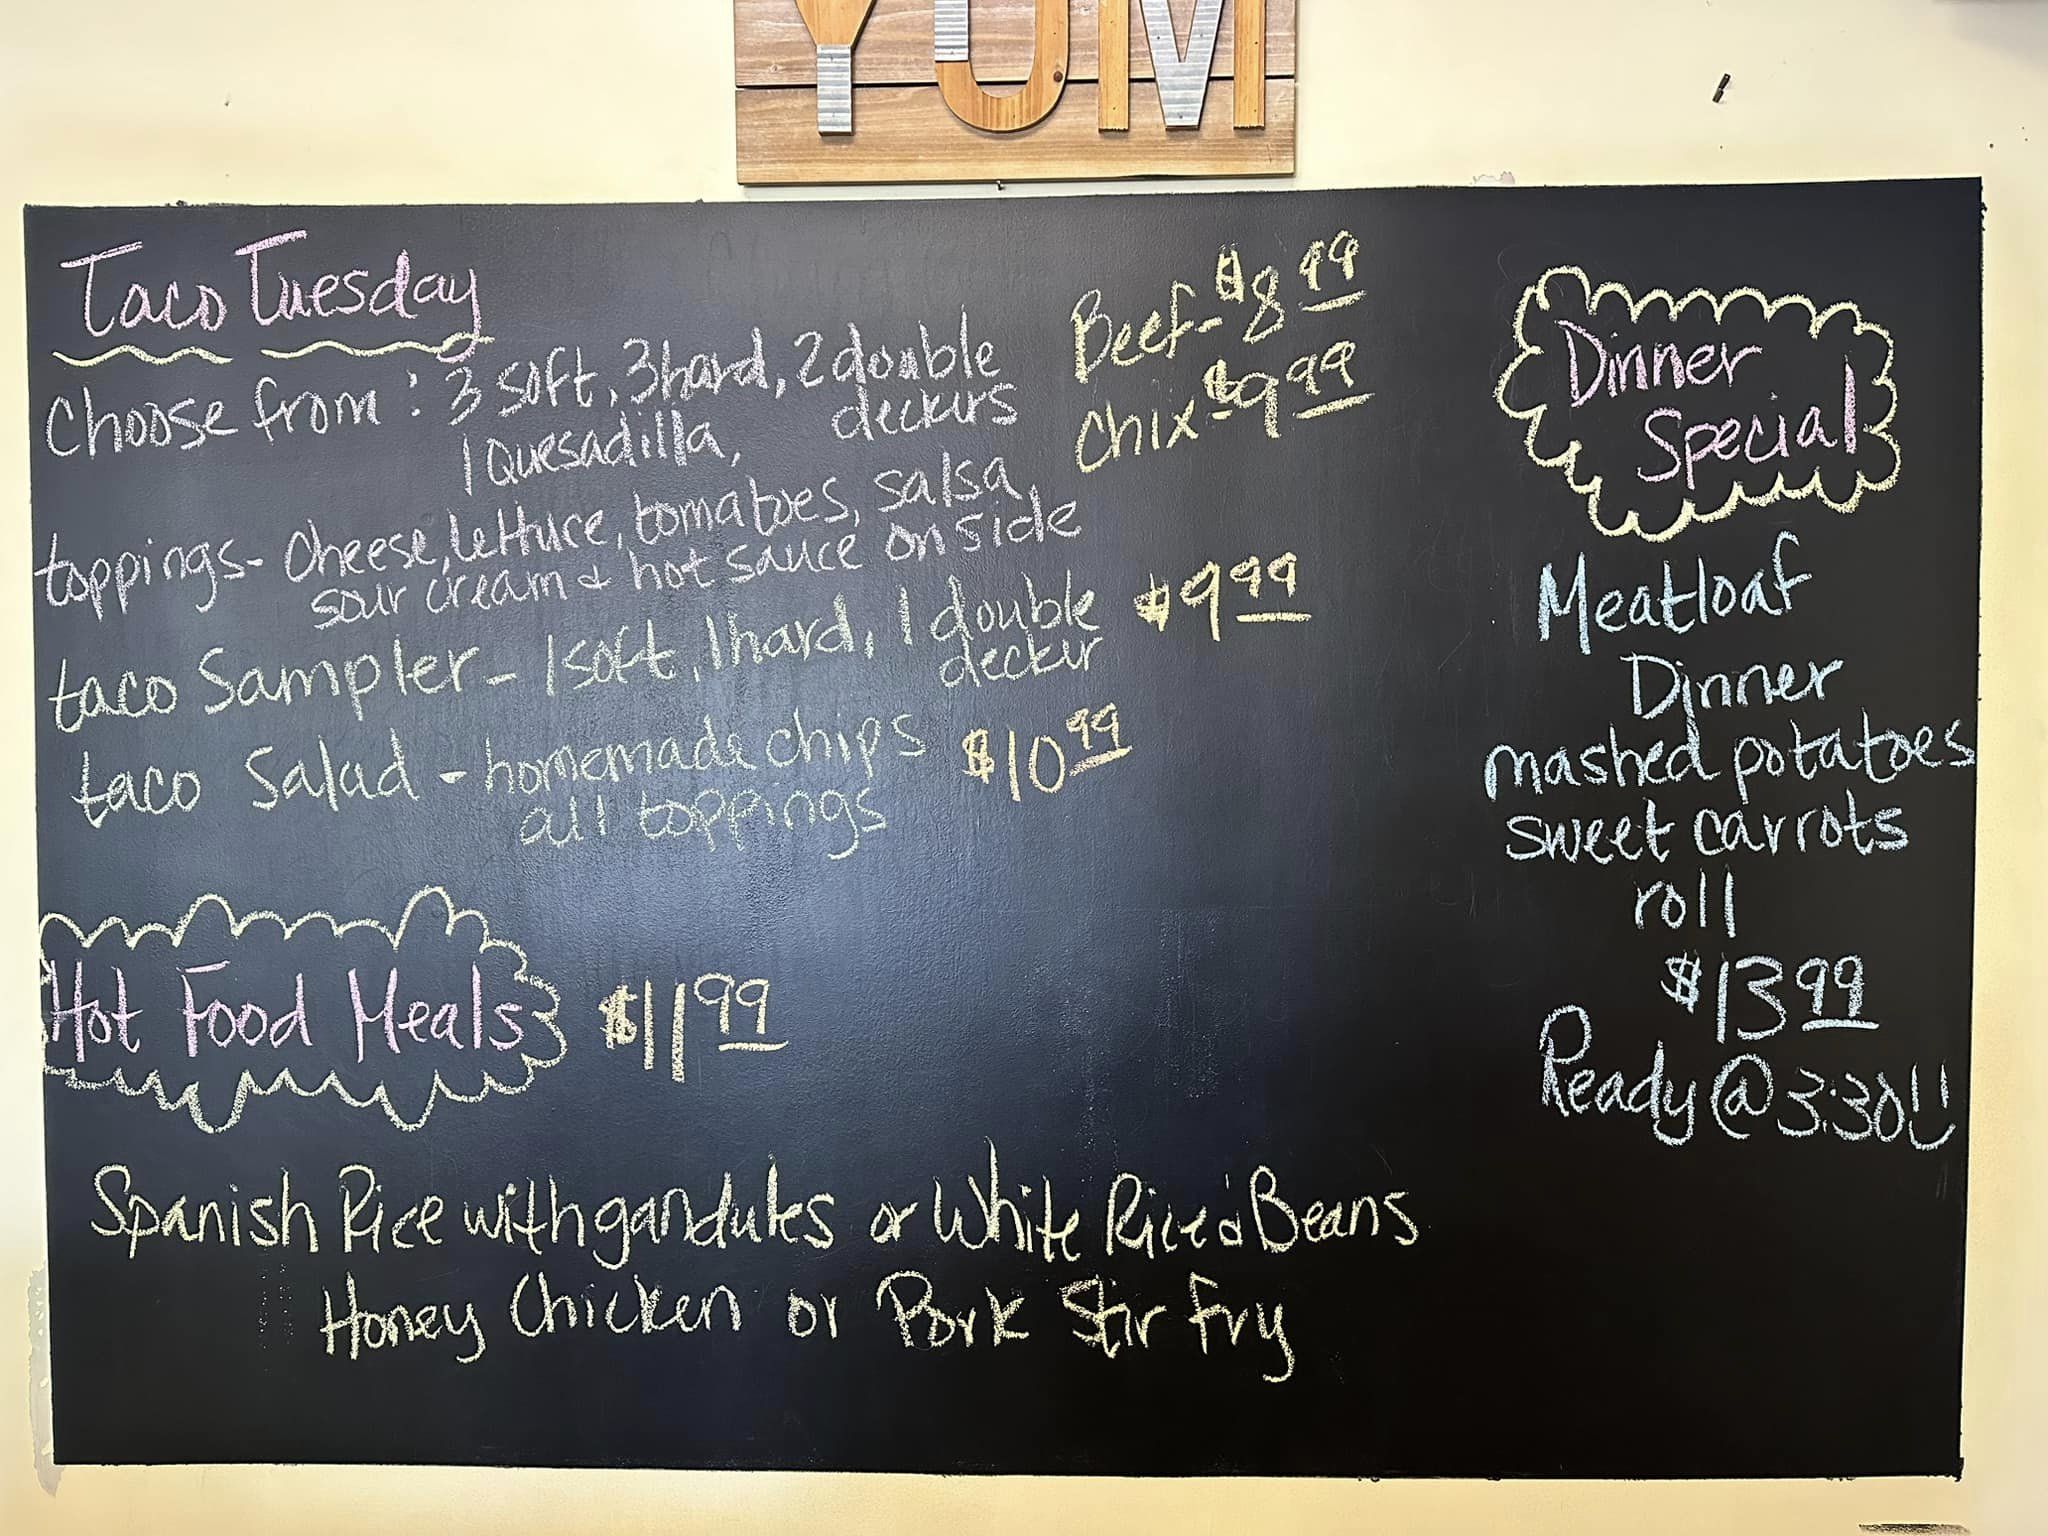 YUM
Taco Tuesday
Choose from: 3 soft, 3 hard, 2 double
deckurs
1 Quesadilla,
Beef - $8.99
Chix $9.99
toppings - Cheese, lettuce, tomatoes, salsa,
sour cream & hot sauce on side
taco Sampler - 1 soft, 1 hard, 1 double
deckur
$9.99
taco Salad - homemade chips
all toppings
$10.99
Hot Food Meals
$11.99
Spanish Rice with gandules or White Rice & Beans
Honey Chicken or Pork Stir Fry
Dinner
Special
Meatloaf
Dinner
mashed potatoes
sweet carrots
roll
$13.99
Ready @ 3:30!!